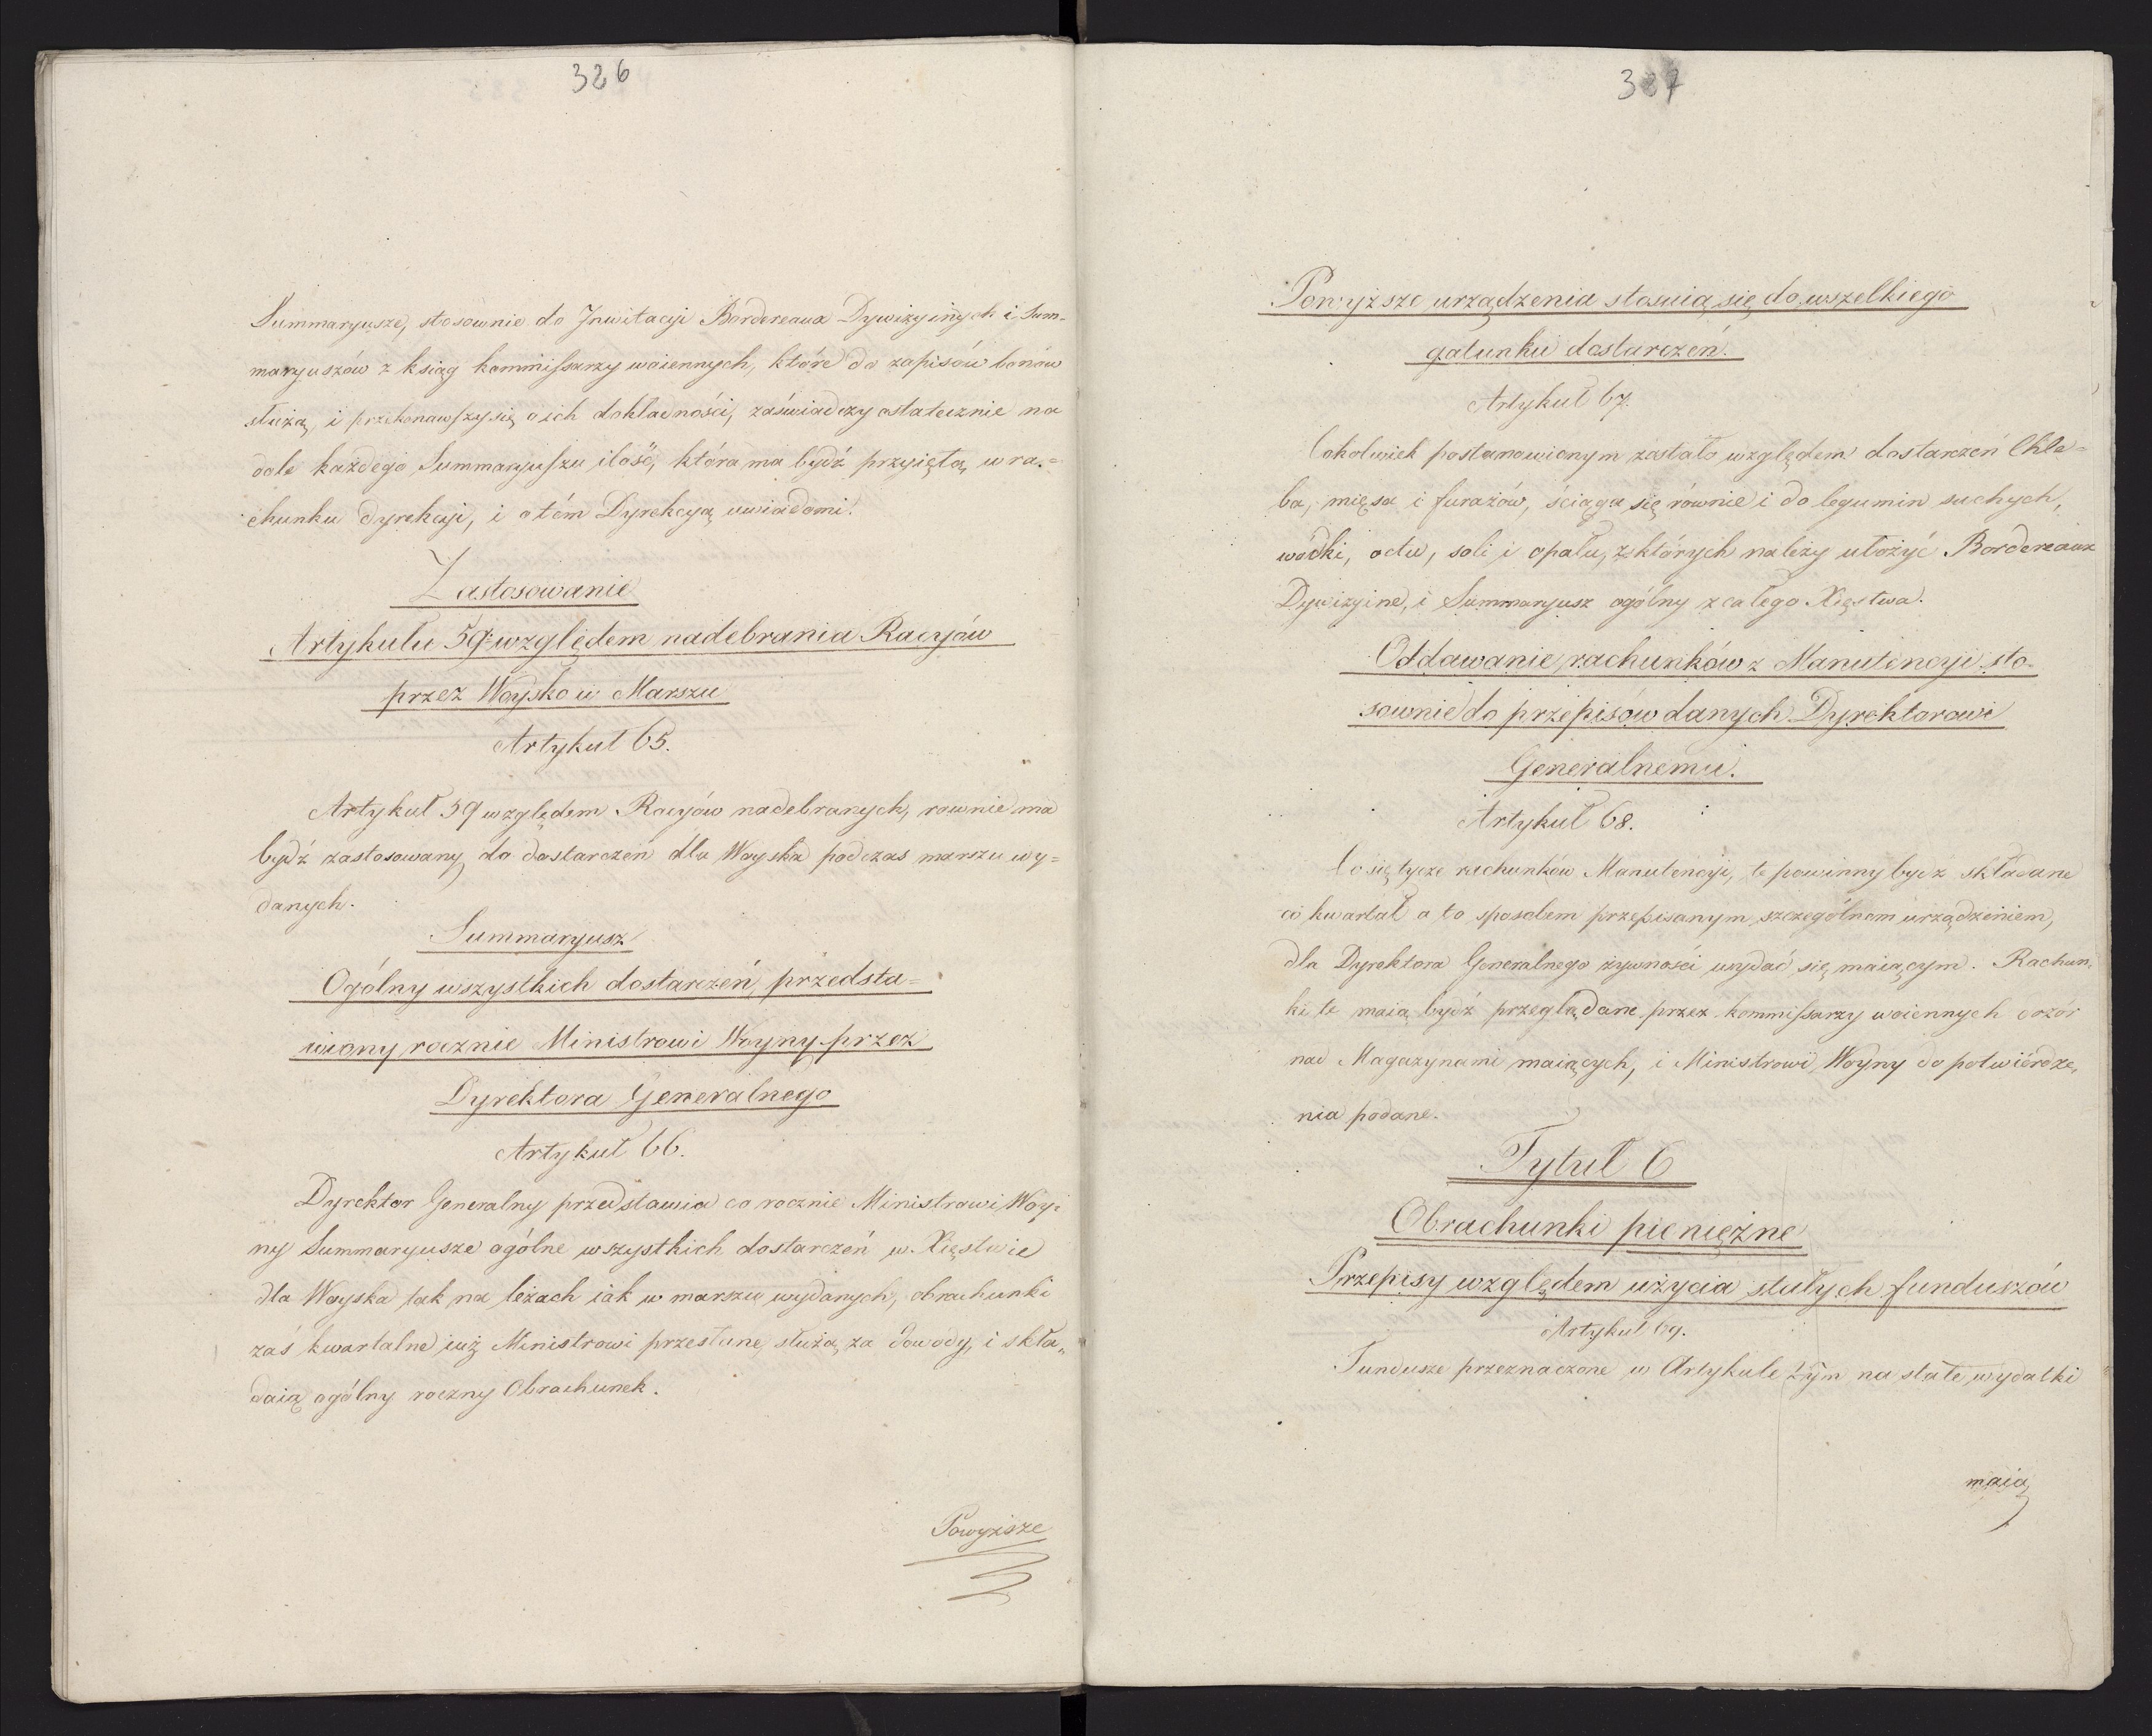 326
Summaryusze, stosownie do Jnwitacyi Bordereaux Dywizyinych i Sum-
maryuszów z ksiąg kommissarzy woiennych, które do zapisów bonów
służą, i przekonawszy się o ich dokładności, zaświadczy ostatecznie na
dole każdego Summaryuszu ilość, która ma bydź przyiętą w ra-
chunku dyrekcyi, i o tém Dyrekcyą uwiadomi.
Zastosowanie
Artykułu 59. względem nadebrania Racyów
przez Woysko w Marszu
Artykuł 65.
Artykuł 59 względem Racyów nadebranych, rownie ma
bydź zastosowany do dostarczeń dla Woyska podczas marszu wy=
danych.
Summaryusz
Ogólny wszystkich dostarczeń, przedsta=
wiony rocznie Ministrowi Woyny przez
Dyrektora Generalnego
Artykuł 66.
Dyrektor Generalny przedstawia co rocznie Ministrowi Woy-
ny Summaryusze ogólne wszystkich dostarczeń w Xięstwie
dla Woyska tak na leżach iak w marszu wydanych, obrachunki
zaś kwartalne iuż Ministrowi przesłane, służą za dowody, i skła„
daią ogólny roczny Obrachunek.
Powyższe
327
Powyższe urządzenia stosuią się do wszelkiego
gatunku dostarczeń.
Artykuł 67.
Cokolwiek postanowionym zostało względem dostarczeń Chle=
ba, mięsa i furażów, ściąga się równie i do legumin suchych,
wódki, octu, soli i opału, z których należy ułożyć Bordereaux
Dywizyine, i Summaryusz ogólny z całego Xięstwa.
Oddawanie rachunków z Manutencyi sto-
sownie do przepisów danych Dyrektorowi
Generalnemu.
Artykuł 68.
Co się tycze rachunków Manutencyi, te powinny bydź składane
co kwartał a to sposobem przepisanym szczególnem urządzeniem,
dla Dyrektora Generalnego żywności wydać się maiącym. Rachun-
ki te maią bydź przeglądane przez kommissarzy woiennych dozór
nad Magazynami maiących, i Ministrowi Woyny do potwiérdze„
nia podane.
Tytuł 6
Obrachunki pieniężne
Przepisy względem użycia stałych funduszów
Artykuł 69.
Fundusze przeznaczone w Artykule na stałe wydatki
maią